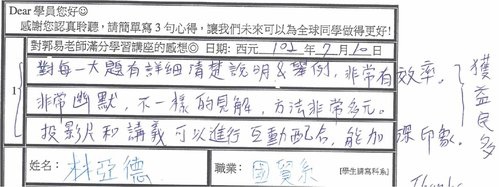 Dear 學員您好☺
感謝您認真聆聽，請簡單寫3句心得，讓我們未來可以為全球同學做得更好!
對郭易老師滿分學習講座的感想◎ 日期: 西元 102 年 7 月 10 日
1
對每一大題有詳細清楚說明&舉例，非常有效率。
非常幽默，不一樣的見解，方法非常多元。
投影片和講義可以進行互動配合，能加深印象。
獲益良多
姓名: 林亞德
職業: 國貿系
[學生請寫科系]
Thanks